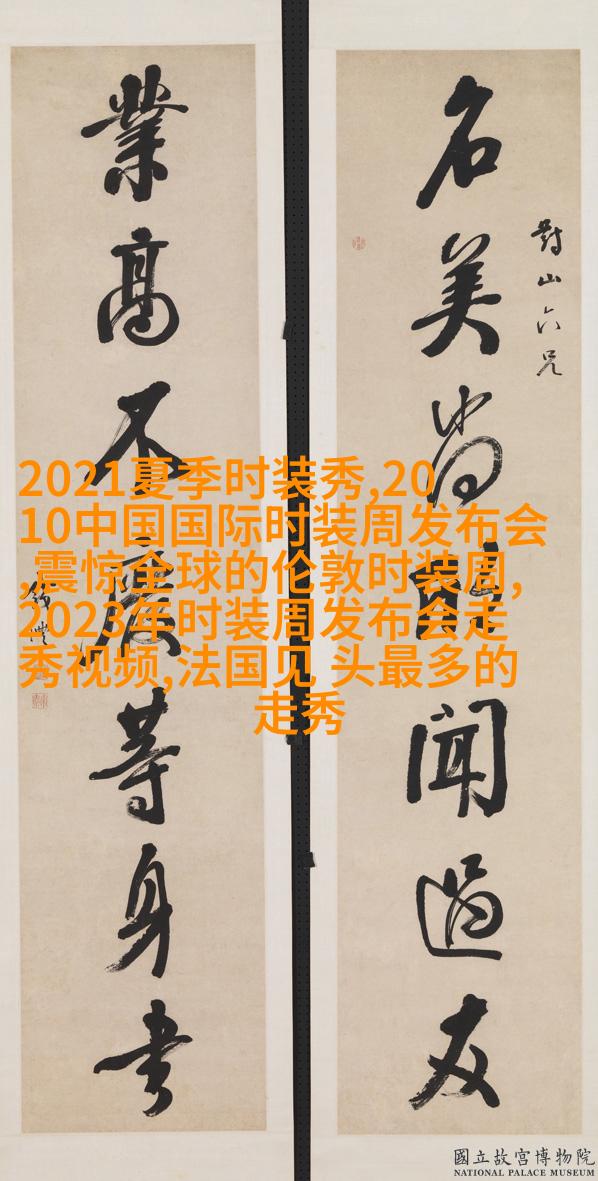 對山六兄
名美尚聞過友
業高不廢等身書
2021夏季时装秀,20
10中国国际时装周发布会
,震惊全球的伦敦时装周,
2023年时装周发布会走
秀视频,法国见 头最多的
走秀
國立故宮博物院
NATIONAL PALACE MUSEUM